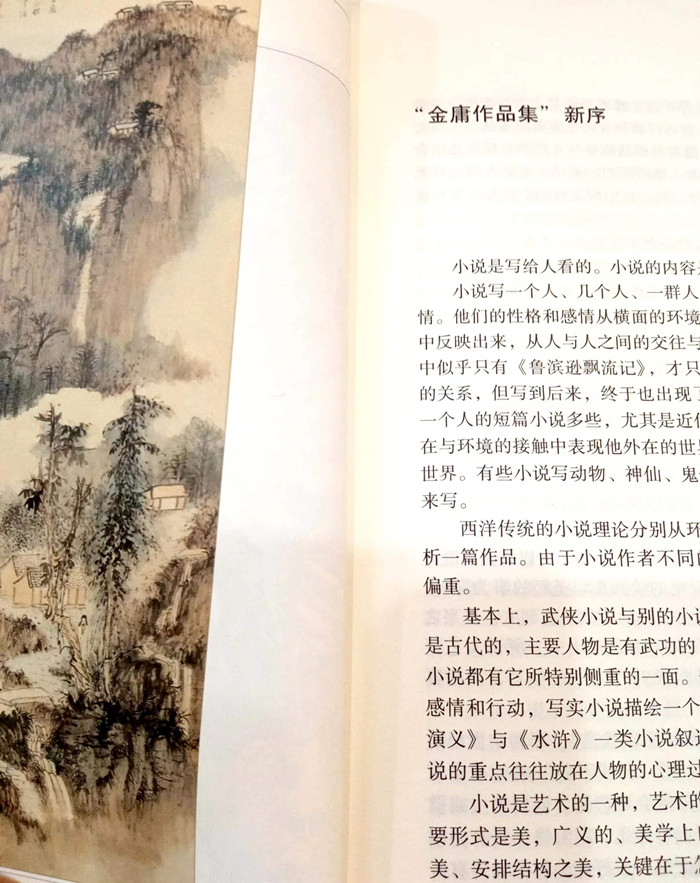 “金庸作品集” 新序
小说是写给人看的。小说的内容是
小说写一个人、几个人、一群人
情。他们的性格和感情从横面的环境
中反映出来，从人与人之间的交往与
中似乎只有《鲁滨逊飘流记》，才只
的关系，但写到后来，终于也出现了
一个人的短篇小说多些，尤其是近代
在与环境的接触中表现他外在的世界
世界。有些小说写动物、神仙、鬼
来写。
西洋传统的小说理论分别从环
析一篇作品。由于小说作者不同的
偏重。
基本上，武侠小说与别的小说
是古代的，主要人物是有武功的
小说都有它所特别侧重的一面。
感情和行动，写实小说描绘一个
演义》与《水浒》一类小说叙述
说的重点往往放在人物的心理过
小说是艺术的一种，艺术的
要形式是美，广义的、美学上
美、安排结构之美，关键在于